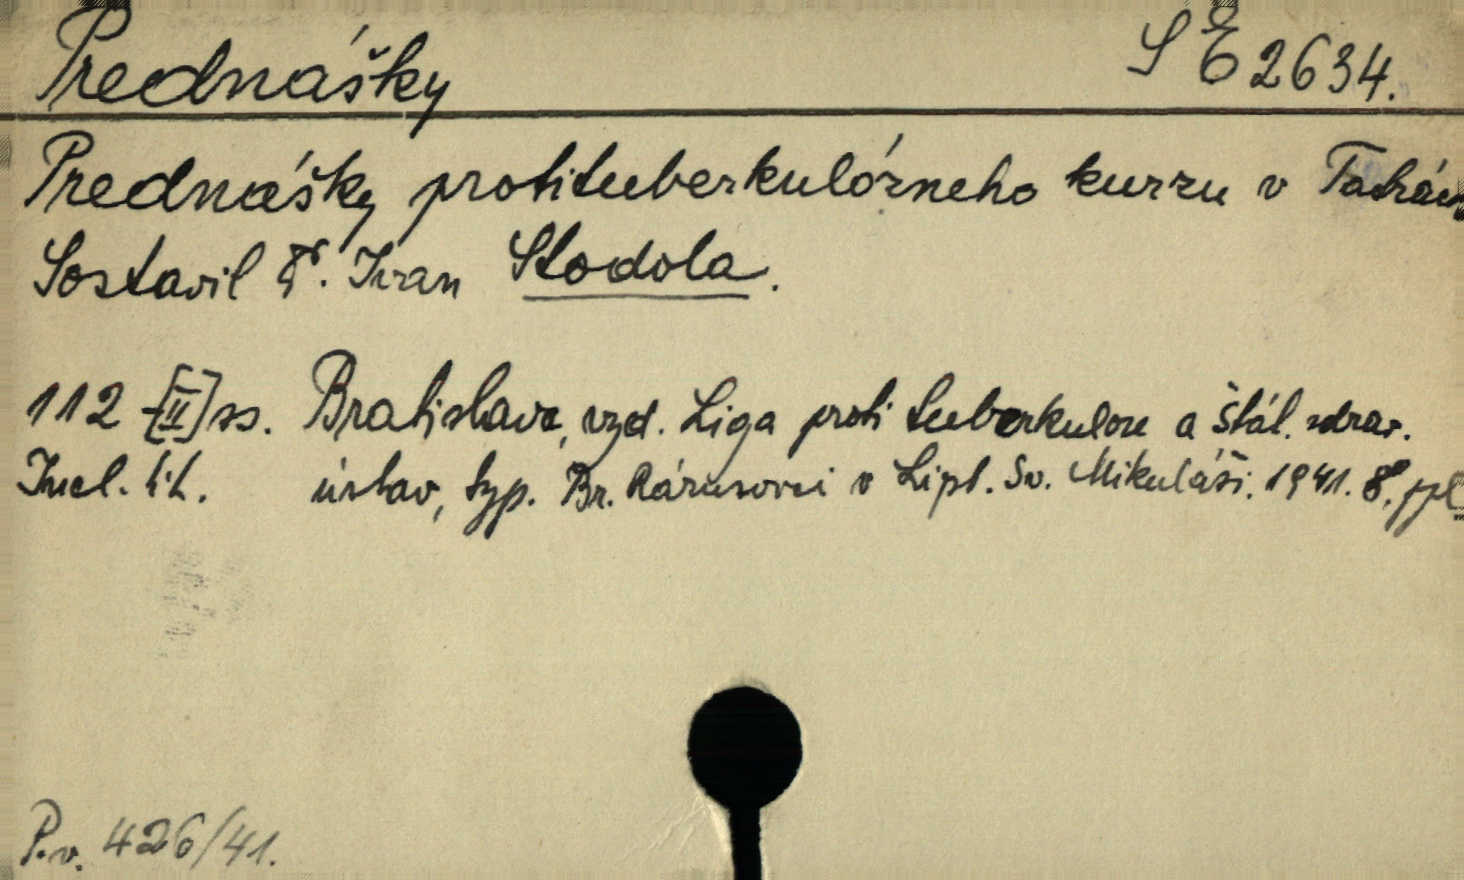 Prednášky SE 2634.
Prednášky protituberkulózneho kurzu v Tatrách
Sostavil Dr. Ivan Stodola.
112 [II] ss. Bratislava, vyd. Liga proti tuberkuloze a štát. zdrav.
Incl. tit. ústav, typ. Br. Rázusovci v Lipt. Sv. Mikuláši. 1941. 8°.
P.v. 426/41.